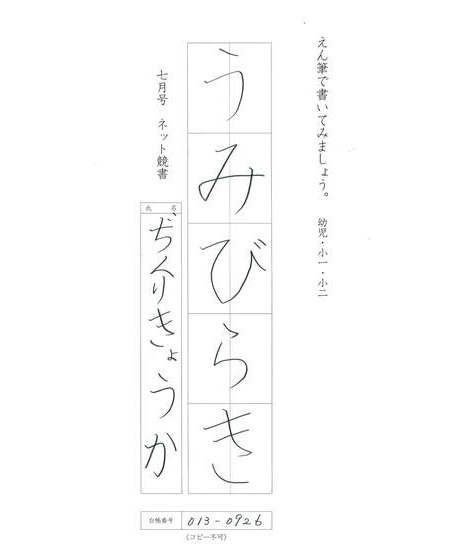 えん筆で書いてみましょう。 幼児・小一・小二
うみびらき
七月号 ネット競書
氏名
きょうか
台帳番号 013-0926
(コピー不可)